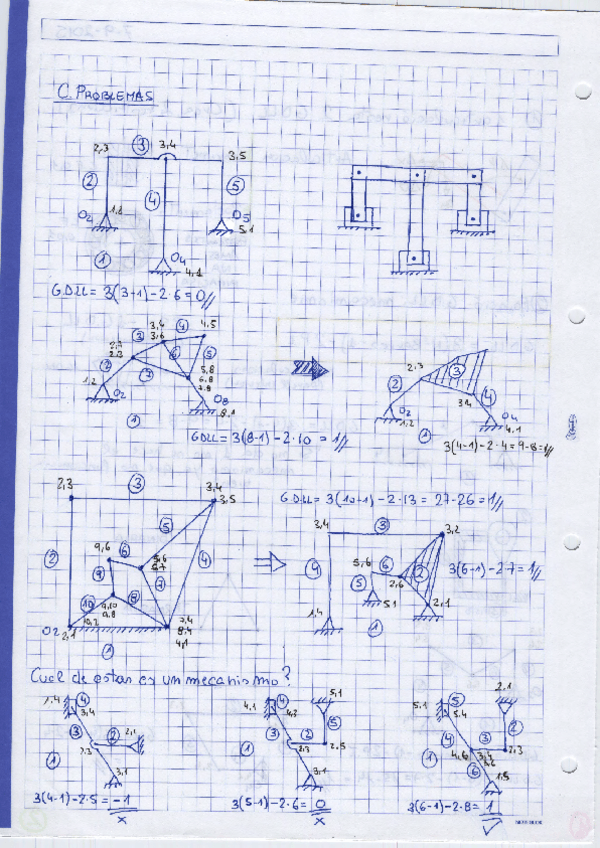 C. PROBLEMAS
2,3 ③ 3,4 3,5
② ④ ⑤
O2 1,2 O5 5,1
① O4 4,1
G.D.LL = 3(3+1)-2·6=0//
3,4 ④ 4,5
3,6
2,3 ③ ⑥ ⑤
2,3
② ⑦ 5,8
6,8
7,8
1,2 O2 O8
8,1
①
2,3 ③
② 3,4 ④
O2 1,2 O4 4,1
①
GDLL = 3(8-1)-2·10 = 1//
3(4-1)-2·4=9-8=1//
2,3 ③ 3,4
3,5
② ⑤ ④
9,6 ⑥ 5,6
5,7
⑨ ⑦
⑩ 9,10 ⑧
9,8
O2 2,1 10,2
8,4
4,1
①
G.D.LL = 3(10-1)-2·13 = 27-26=1//
3,4 ③ 3,2
④ 5,6 ⑥ ②
⑤ 2,6
1,4 5,1 2,1
①
3(6-1)-2·7=1//
Cual de estas es un mecanismo?
1,4 ④ 3,4
③ ② 2,1
① 2,3
3,1
3(4-1)-2·5=-1
x
4,1 ④ 4,3 5,1
③ ② ⑤
① 2,3 2,5
3,1
3(5-1)-2·6=0
x
5,1 ⑤ 5,4 2,1
④ ③ ②
① 4,6 2,3
⑥ 1,5
3(6-1)-2·8=1
✓